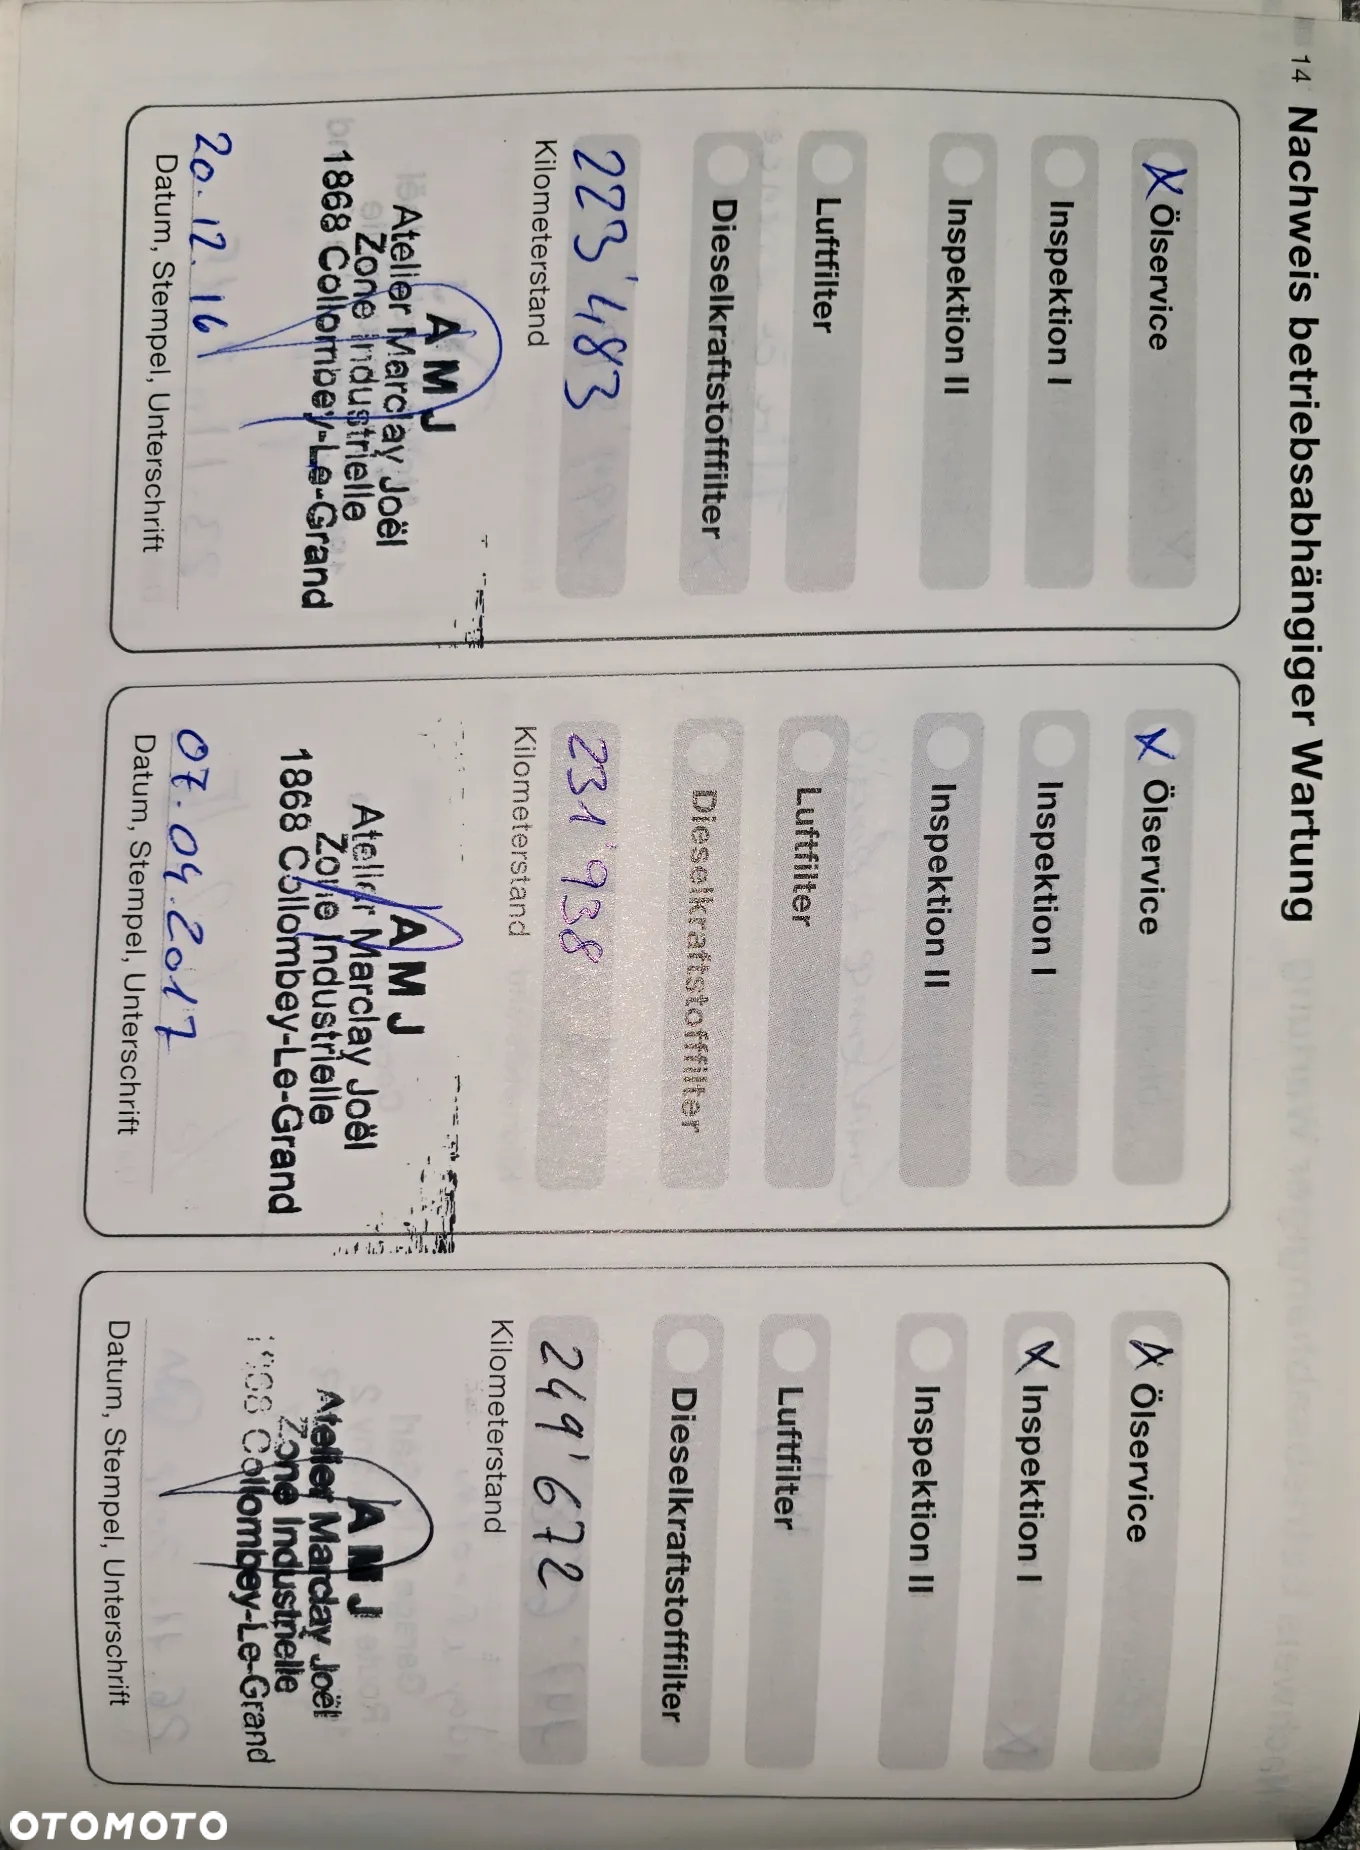 14 Nachweis betriebsabhängiger Wartung
X Ölservice
Inspektion I
Inspektion II
Luftfilter
Dieselkraftstofffilter
223'483
Kilometerstand
A M J
Atelier Marclay Joël
Zone Industrielle
1868 Collombey-Le-Grand
20.12.16
Datum, Stempel, Unterschrift
X Ölservice
Inspektion I
Inspektion II
Luftfilter
Dieselkraftstofffilter
231'938
Kilometerstand
A M J
Atelier Marclay Joël
Zone Industrielle
1868 Collombey-Le-Grand
07.09.2017
Datum, Stempel, Unterschrift
X Ölservice
X Inspektion I
Inspektion II
Luftfilter
Dieselkraftstofffilter
249'672
Kilometerstand
A M J
Atelier Marclay Joël
Zone Industrielle
Collombey-Le-Grand
Datum, Stempel, Unterschrift
OTOMOTO